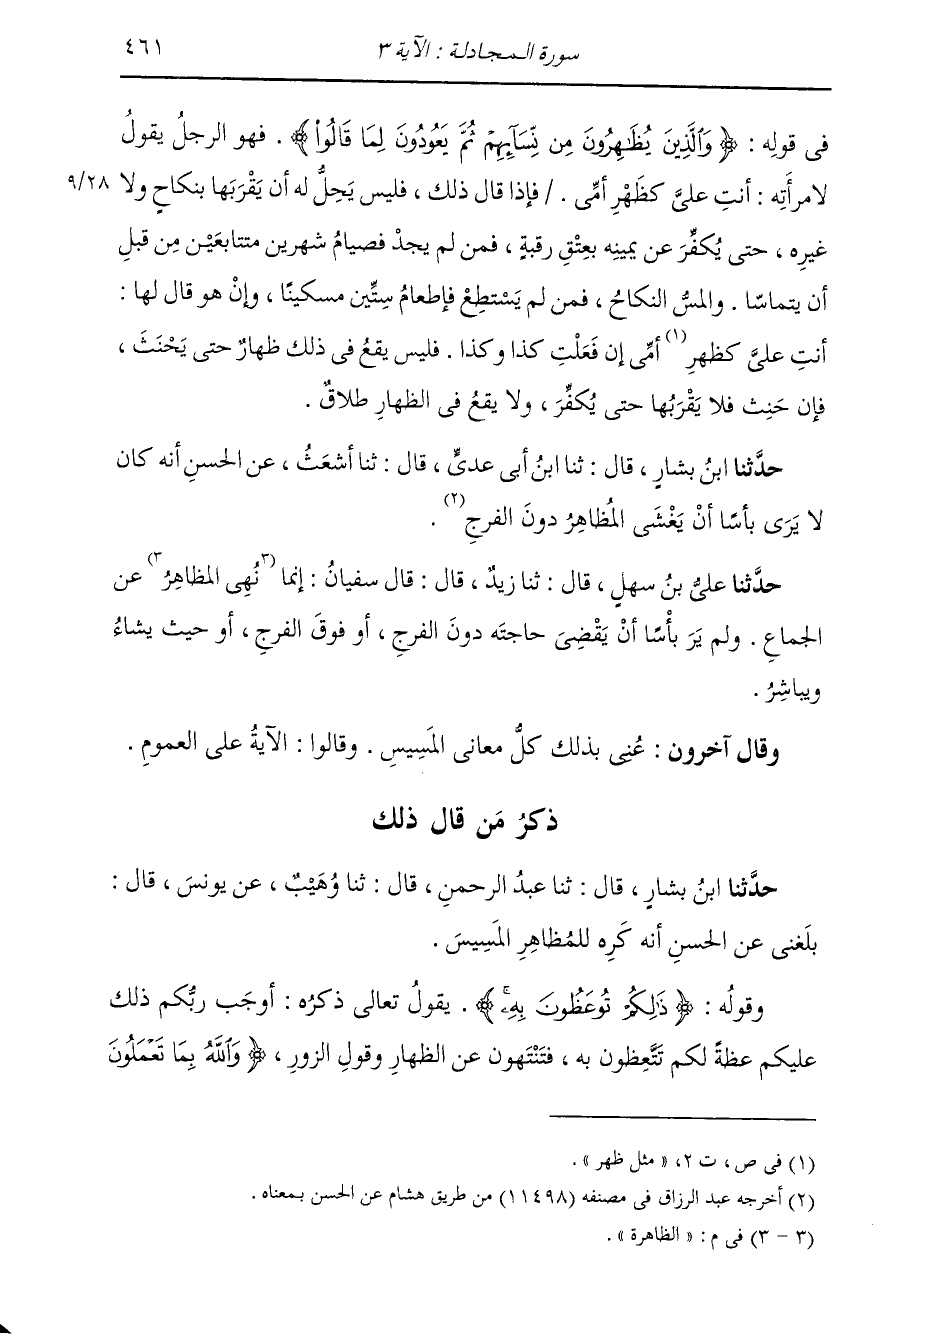 سورة المجادلة : الآية ٣ ٤٦١
فى قولِه : ﴿ وَٱلَّذِينَ يُظَٰهِرُونَ مِن نِّسَآئِهِمۡ ثُمَّ يَعُودُونَ لِمَا قَالُواْ ﴾ . فهو الرجلُ يقولُ
لامرأَتِه : أنتِ علىَّ كظَهْرِ أمِّى . / فإذا قال ذلك ، فليس يَحِلُّ له أن يَقْرَبَها بنكاحٍ ولا ٩/٢٨
غيرِه ، حتى يُكفِّرَ عن يمينِه بعِتْقِ رقبةٍ ، فمن لم يجدْ فصيامُ شهرين متتابعَيْن مِن قبلِ
أن يتماسّا . والمسُّ النكاحُ ، فمن لم يَسْتطِعْ فإطعامُ ستِّين مسكينًا ، وإنْ هو قال لها :
أنتِ علىَّ كظهرِ(١) أمِّى إن فَعَلْتِ كذا وكذا . فليس يقعُ فى ذلك ظهارٌ حتى يَحْنَثَ ،
فإن حَنِث فلا يَقْرَبُها حتى يُكفِّرَ ، ولا يقعُ فى الظهارِ طلاقٌ .
حدَّثنا ابنُ بشارٍ ، قال : ثنا ابنُ أبى عدىٍّ ، قال : ثنا أشعَثُ ، عن الحسنِ أنه كان
لا يَرَى بأسًا أنْ يَغْشَى المُظاهِرُ دونَ الفرجِ(٢) .
حدَّثنا علىُّ بنُ سهلٍ ، قال : ثنا زيدٌ ، قال : قال سفيانُ : إنما (٣نُهِى المظاهِرُ٣) عن
الجماعِ . ولم يَرَ بأْسًا أنْ يَقْضِىَ حاجتَه دونَ الفرجِ ، أو فوقَ الفرجِ ، أو حيث يشاءُ
ويباشِرُ .
وقال آخرون : عُنِى بذلك كلُّ معانى المَسِيسِ . وقالوا : الآيةُ على العمومِ .
ذكرُ مَن قال ذلك
حدَّثنا ابنُ بشارٍ ، قال : ثنا عبدُ الرحمنِ ، قال : ثنا وُهَيْبٌ ، عن يونسَ ، قال :
بلَغنى عن الحسنِ أنه كَرِه للمُظاهِرِ المَسِيسَ .
وقولُه : ﴿ ذَٰلِكُمۡ تُوعَظُونَ بِهِۦۚ ﴾ . يقولُ تعالى ذكرُه : أوجَب ربُّكم ذلك
عليكم عظةً لكم تَتَّعِظون به ، فتَنْتَهون عن الظهارِ وقولِ الزورِ ، ﴿ وَٱللَّهُ بِمَا تَعۡمَلُونَ
(١) فى ص ، ت ٢، « مثل ظهر » .
(٢) أخرجه عبد الرزاق فى مصنفه (١١٤٩٨) من طريق هشام عن الحسن بمعناه .
(٣ - ٣) فى م : « الظاهرة » .